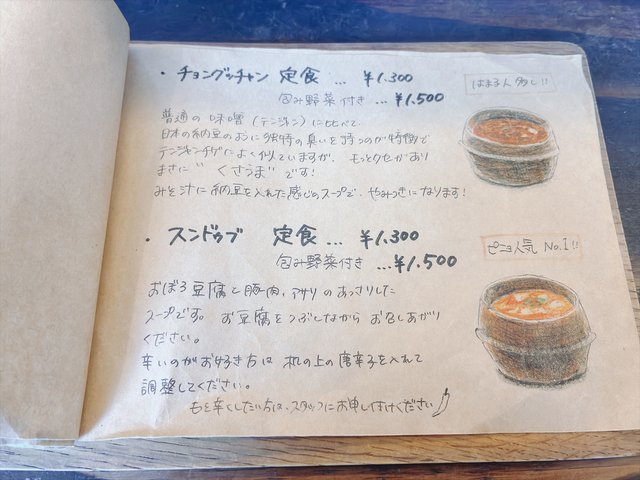 ・チョングッチャン 定食 … ¥1.300
包み野菜付き … ¥1.500
はまる人 多し!!
普通の 味噌 (テンジャン) に比べて
日本の納豆のように独特の臭いを持つのが特徴で
テンジャンチゲによく似ていますが、もっとクセがあり
まさに "くさうま" です!
みそ汁に納豆を入れた感じのスープで、やみつきになります!
・スンドゥブ 定食 … ¥1.300
包み野菜付き … ¥1.500
ピニョ人気 No.1!!
おぼろ豆腐と豚肉、アサリのあっさりした
スープです。お豆腐をつぶしながらお召しあがり
ください。
辛いのがお好き方は 机の上の唐辛子を入れて
調整してください。
もと辛くしたい方は、スタッフにお申し付けください